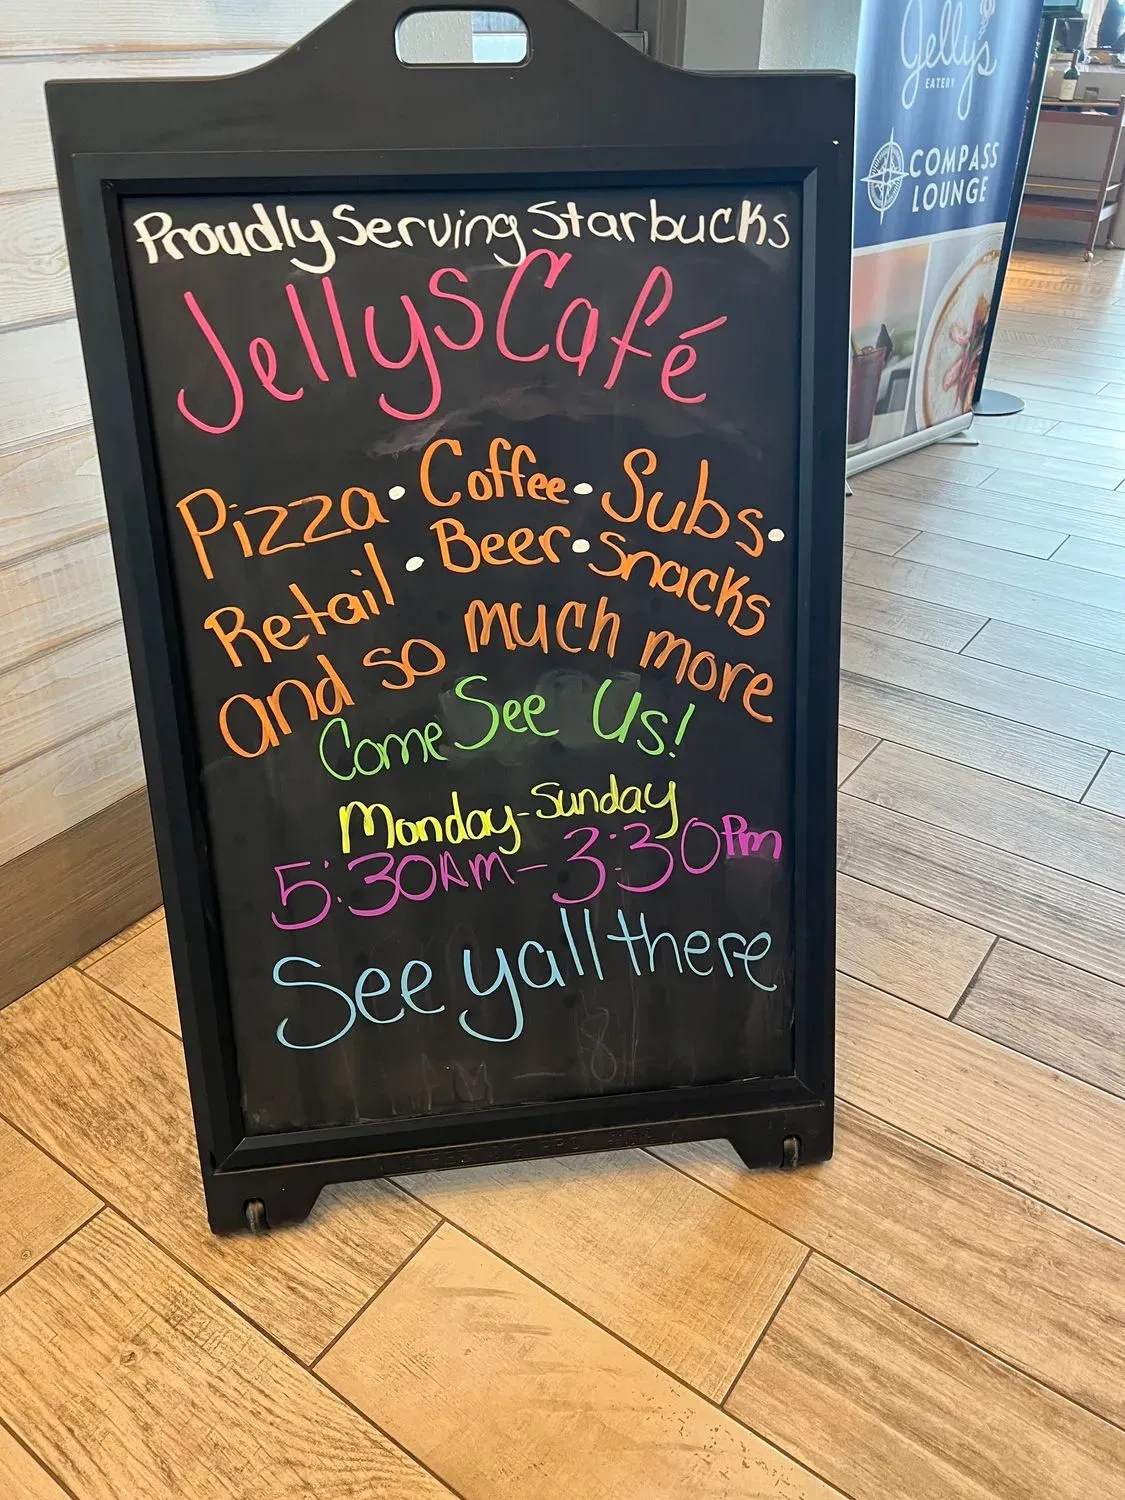 Jelly's
EATERY
COMPASS
LOUNGE
Proudly Serving Starbucks
Jellys Café
Pizza • Coffee • Subs •
Retail • Beer • Snacks
and so much more
Come See Us!
Monday - Sunday
5:30AM - 3:30PM
See yall there